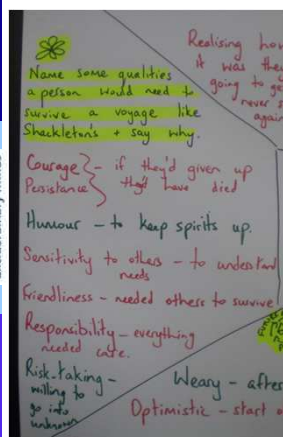 Name some qualities
a person would need to
survive a voyage like
Shackleton's + say why.
Courage } - if they'd given up
Persistance } they'd have died
Humour - to keep spirits up.
Sensitivity to others - to understand
needs
Friendliness - needed others to survive
Responsibility - everything
needed care.
Risk-taking -
willing to
go into
unknown
Realising how
it was they
going to ge
never s
again
Weary - after
Optimistic - start o